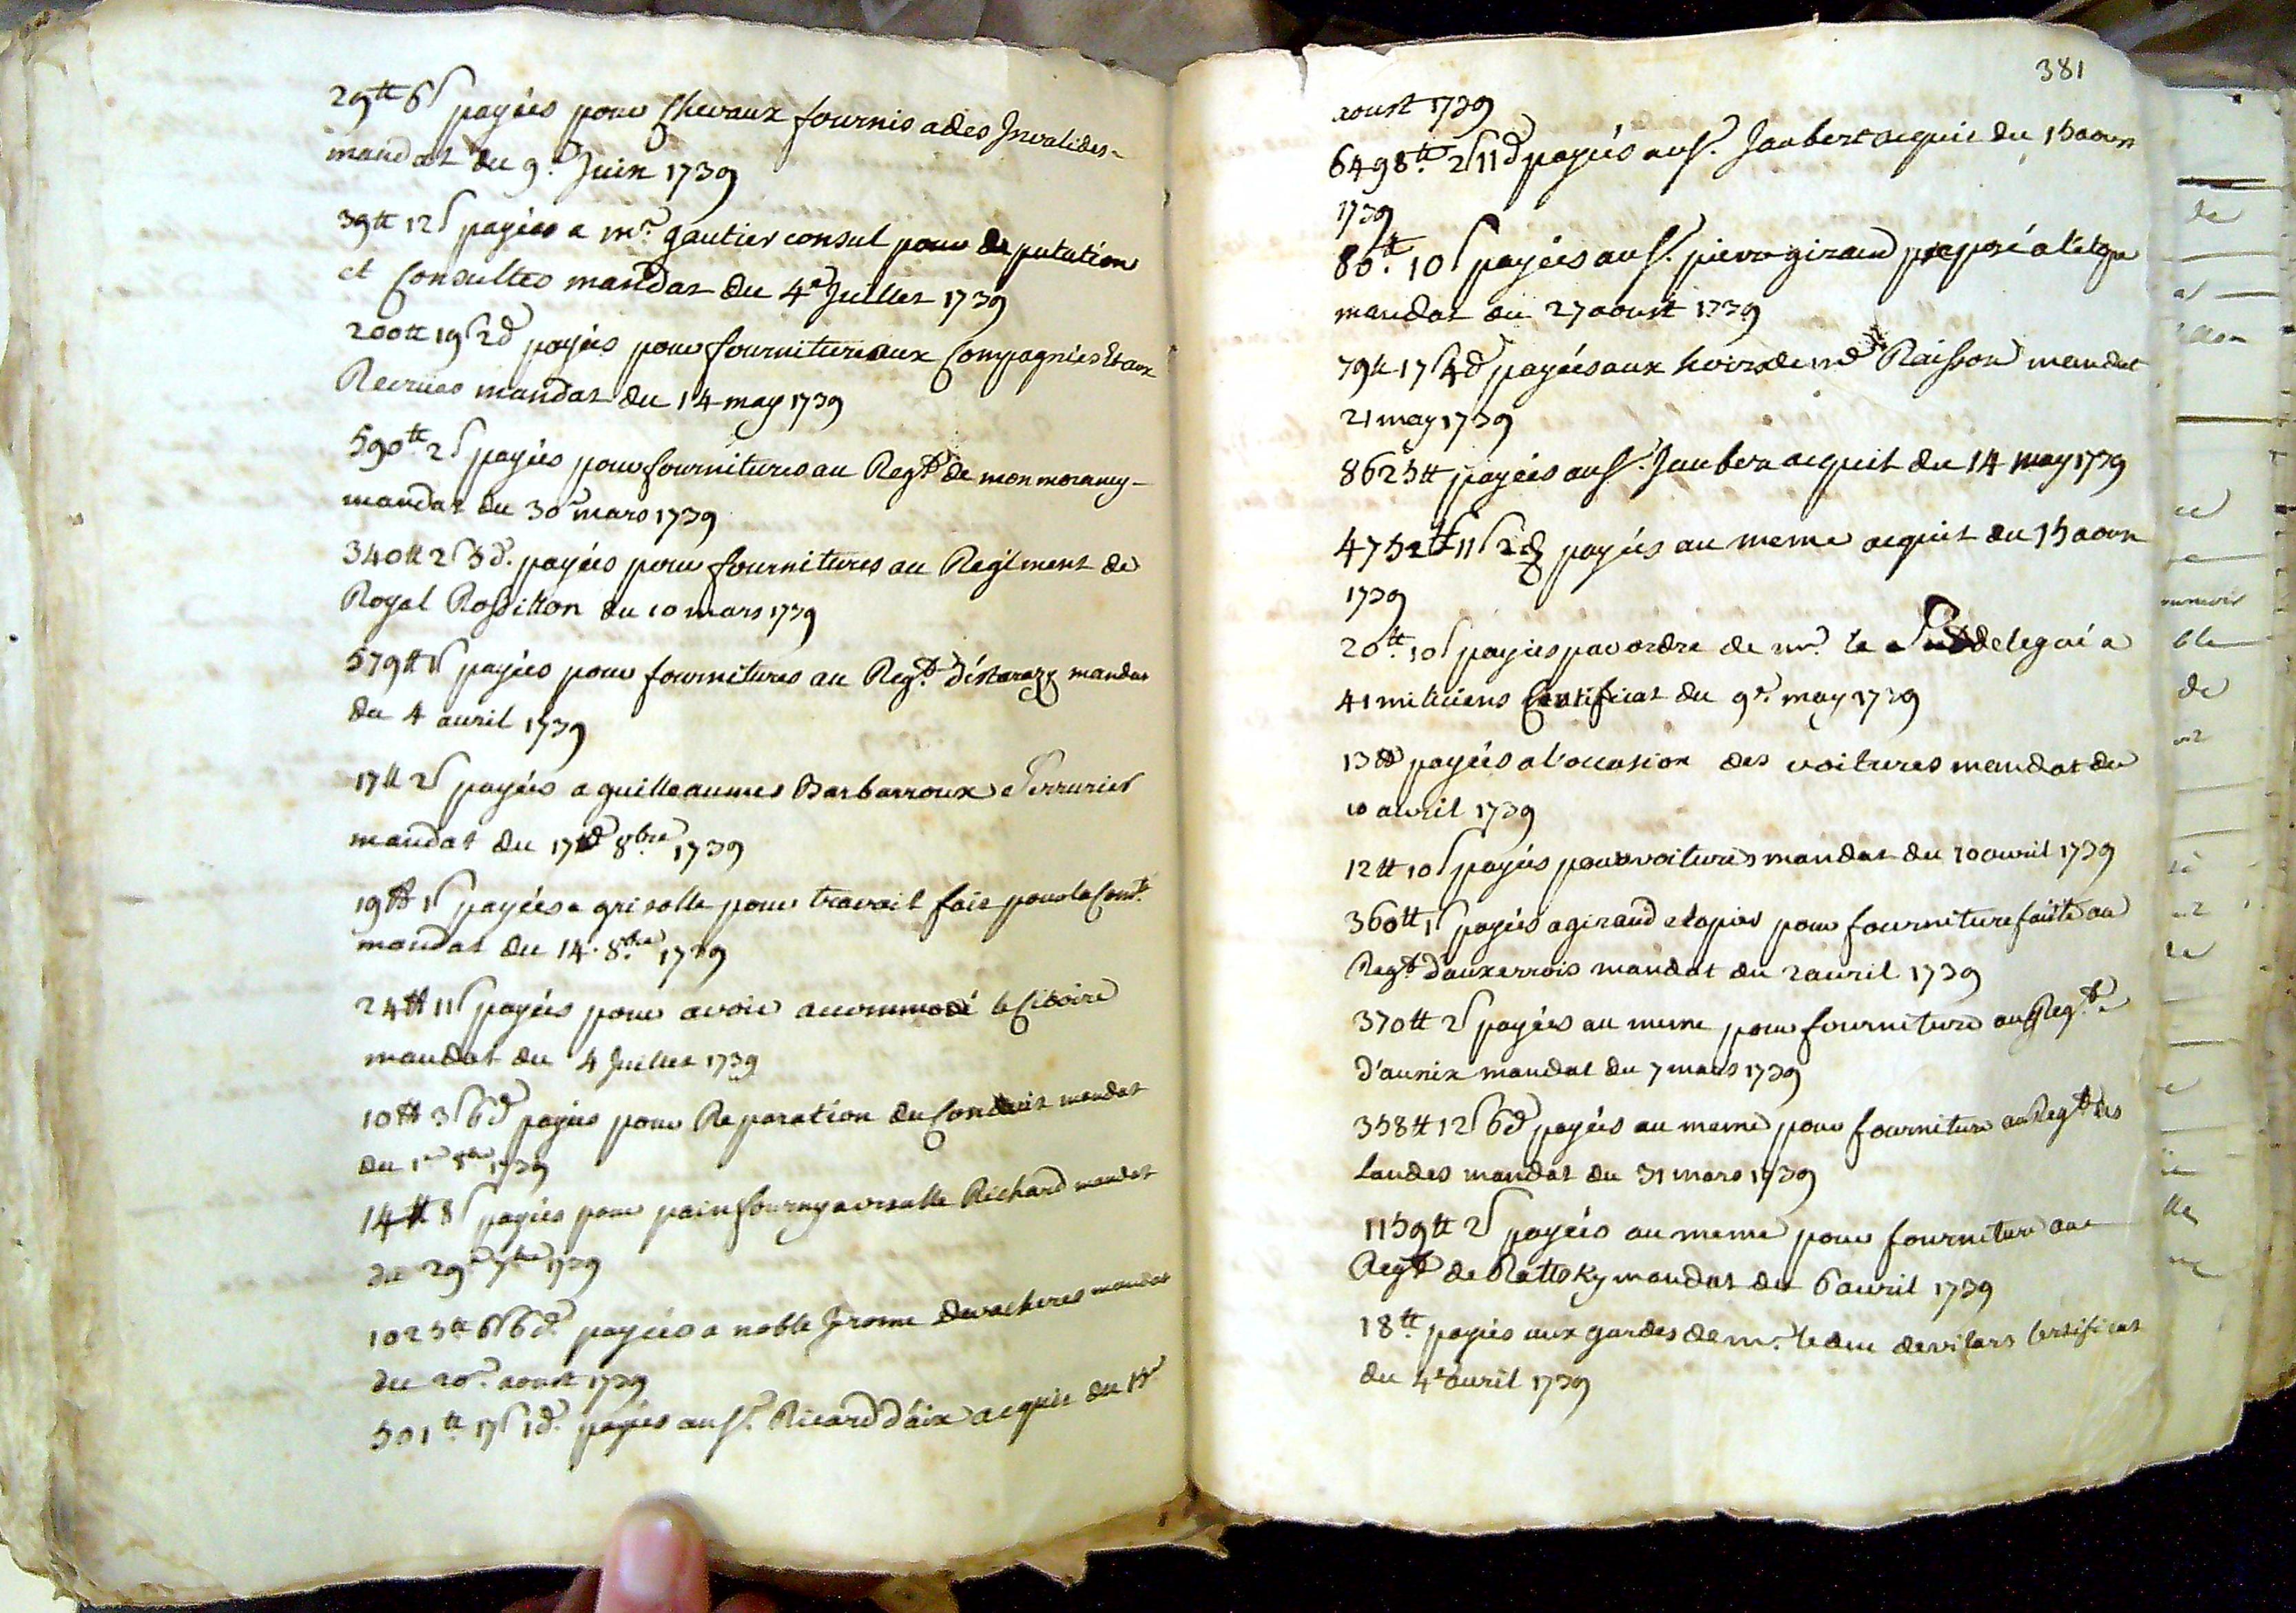 29tt 6s payées pour Chevaux fournis a des Invalides
mandat du 9e Juin 1739
39tt 12s payées a mr. gautier consul pour deputation
et Consultes mandat du 4e Juillet 1739
200tt 19s 2d payées pour fourniture aux Compagnies et aux
Recrues mandat du 14 may 1739
590tt 2s payées pour fournitures au Regt. de monmorancy
mandat du 30 mars 1739
340tt 2s 5d. payées pour fournitures au Regiment de
Royal Rossillon du 10 mars 1739
579tt 1s payées pour fournitures au Regt. d'éstarazy mandat
du 4 avril 1739
17tt 2s payées a guilleaumes Barbarroux Serrurier
mandat du 17e 8bre 1739
19tt 1s payées a grisolle pour travail fait pour la Comté.
mandat du 14. 8bre 1739
24tt 11s payées pour avoir accommodé le Ciboire
mandat du 4 Juillet 1739
10tt 3s 6d payées pour Reparation du Conduit mandat
du 1er 8bre 1739
14tt 8s payées pour pain fourny a Richard mandat
du 29e 7bre 1739
1025tt 6s 6d. payées a noble Jerome devacheres mandat
du 20e. aoust 1739
501tt 17s 1d. payées au Sr. Ricard d'aix acquit du 15e
381
aoust 1739
6498tt 2s 11d payées au Sr. Jaubert acquit du 15 aoust
1739
80tt. 10s payées au Sr. pierre giraud preposé a l'etape
mandat du 27 aoust 1739
79tt 17s 4d payées aux hoirs de mr Raisson mandat
21 may 1739
8625tt payées au Sr. Jaubert acquit du 14 may 1739
4752tt 11s 2d payées au meme acquit du 15 aoust
1739
20tt. 10s payées par ordre de mr. le Subdelegué a
41 miliciens Certificat du 9e. may 1739
13tt payées a l'occasion des voitures mandat du
10 avril 1739
12tt 10s payées pour voitures mandat du 10 avril 1739
360tt 1s payées a giraud etapier pour fourniture faite au
Regt. d'auxerrois mandat du 2 avril 1739
370tt 2s payées au meme pour fourniture au Regt.
d'aunix mandat du 7 mars 1739
358tt 12s 6d payées au meme pour fourniture au Regt. des
landes mandat du 31 mars 1739
1159tt 2s payées au meme pour fourniture au
Regt. de Rattsky mandat du 6 avril 1739
18tt. payées aux gardes de mr. le duc devilars Certificat
du 4e avril 1739